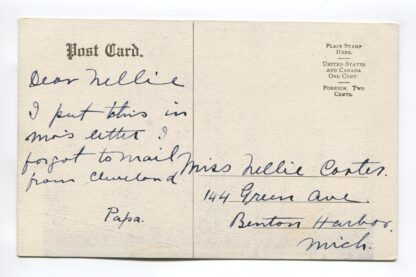 Post Card.
PLACE STAMP
HERE.
UNITED STATES
AND CANADA
ONE CENT.
FOREIGN, TWO
CENTS.
Dear Nellie
I put this in
ma's letter I
forgot to mail
from Cleveland
Papa.
Miss Nellie Carter.
144 Green Ave.
Benton Harbor
Mich.